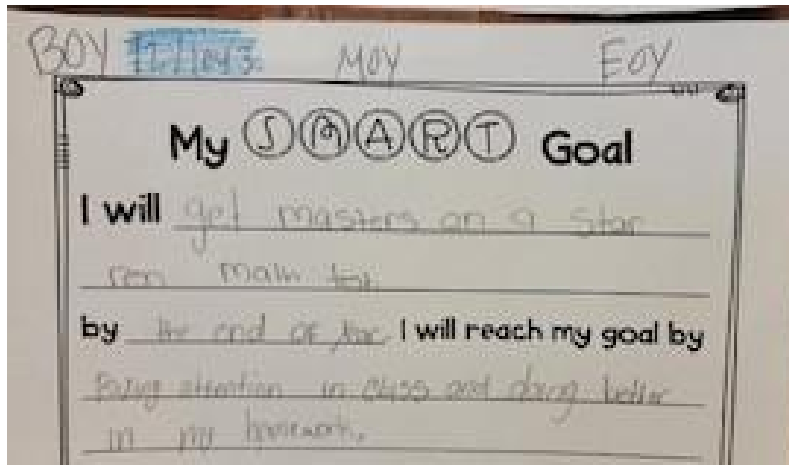 BOY MOY EOY
My SMART Goal
I will get masters on a star
ren math
by the end of the I will reach my goal by
Paying attention in class and doing better
in my homework.